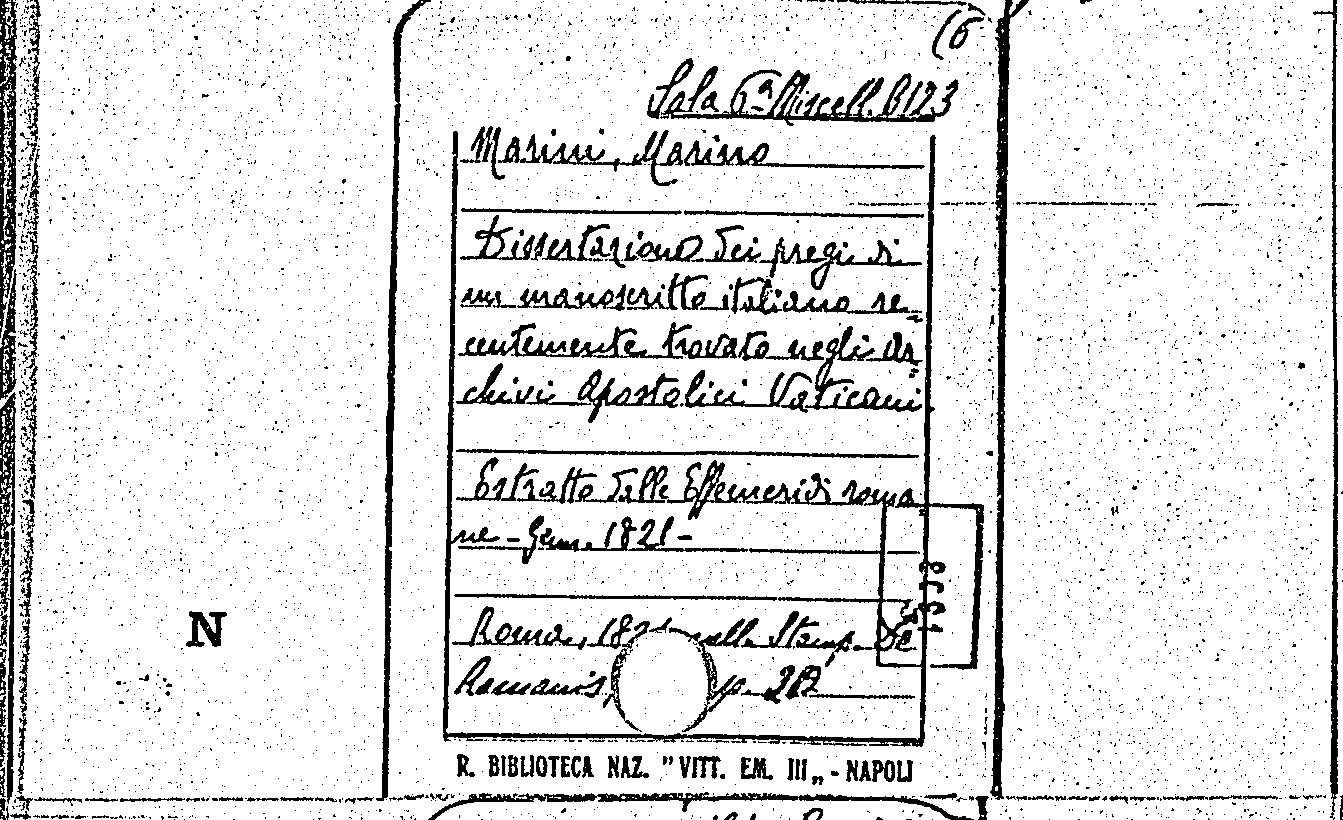 (6
Sala 6ª Miscell. B123
Marini, Marino
Dissertazione dei pregi di
un manoscritto italiano re-
centemente trovato negli Ar
chivi Apostolici Vaticani.
Estratto dalle Effemeridi roma
ne - Genn. 1821 -
Roma, 182 nella Stamp. De
Romanis, p.
N
R. BIBLIOTECA NAZ. "VITT. EM. III„ - NAPOLI